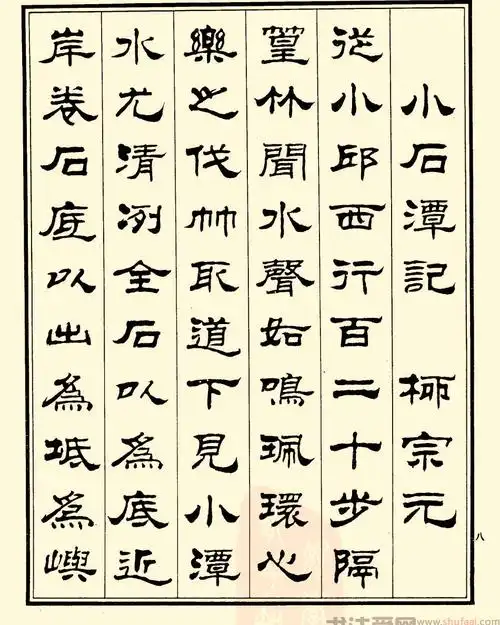 小石潭記 柳宗元
從小邱西行百二十步隔
篁竹聞水聲如鳴珮環心
樂之伐竹取道下見小潭
水尤清冽全石以爲底近
岸卷石底以出爲坻爲嶼
八
www.shufaai.com